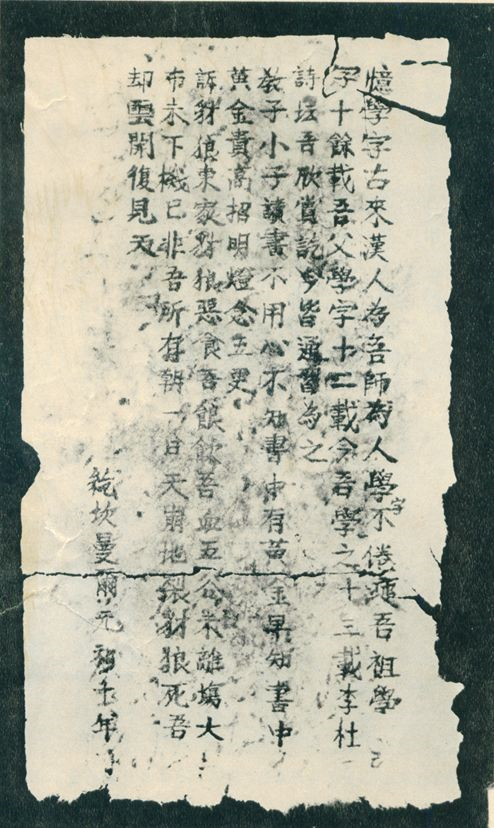 憶學字古來漢人為吾師為人學字不倦疲吾祖學
字十餘載吾父學字十二載今吾學之十三載李杜
詩坛吾欣賞訖今皆通習為之
教子小子讀書不用心不知書中有黄金早知書中
黄金貴高招明燈念五更
訴豺狼東家豺狼惡食吾饢飲吾血五谷未離場大
布未下機已非吾所有朝一日天崩地裂豺狼死吾
却雲開復見天
紇坎曼爾元和年